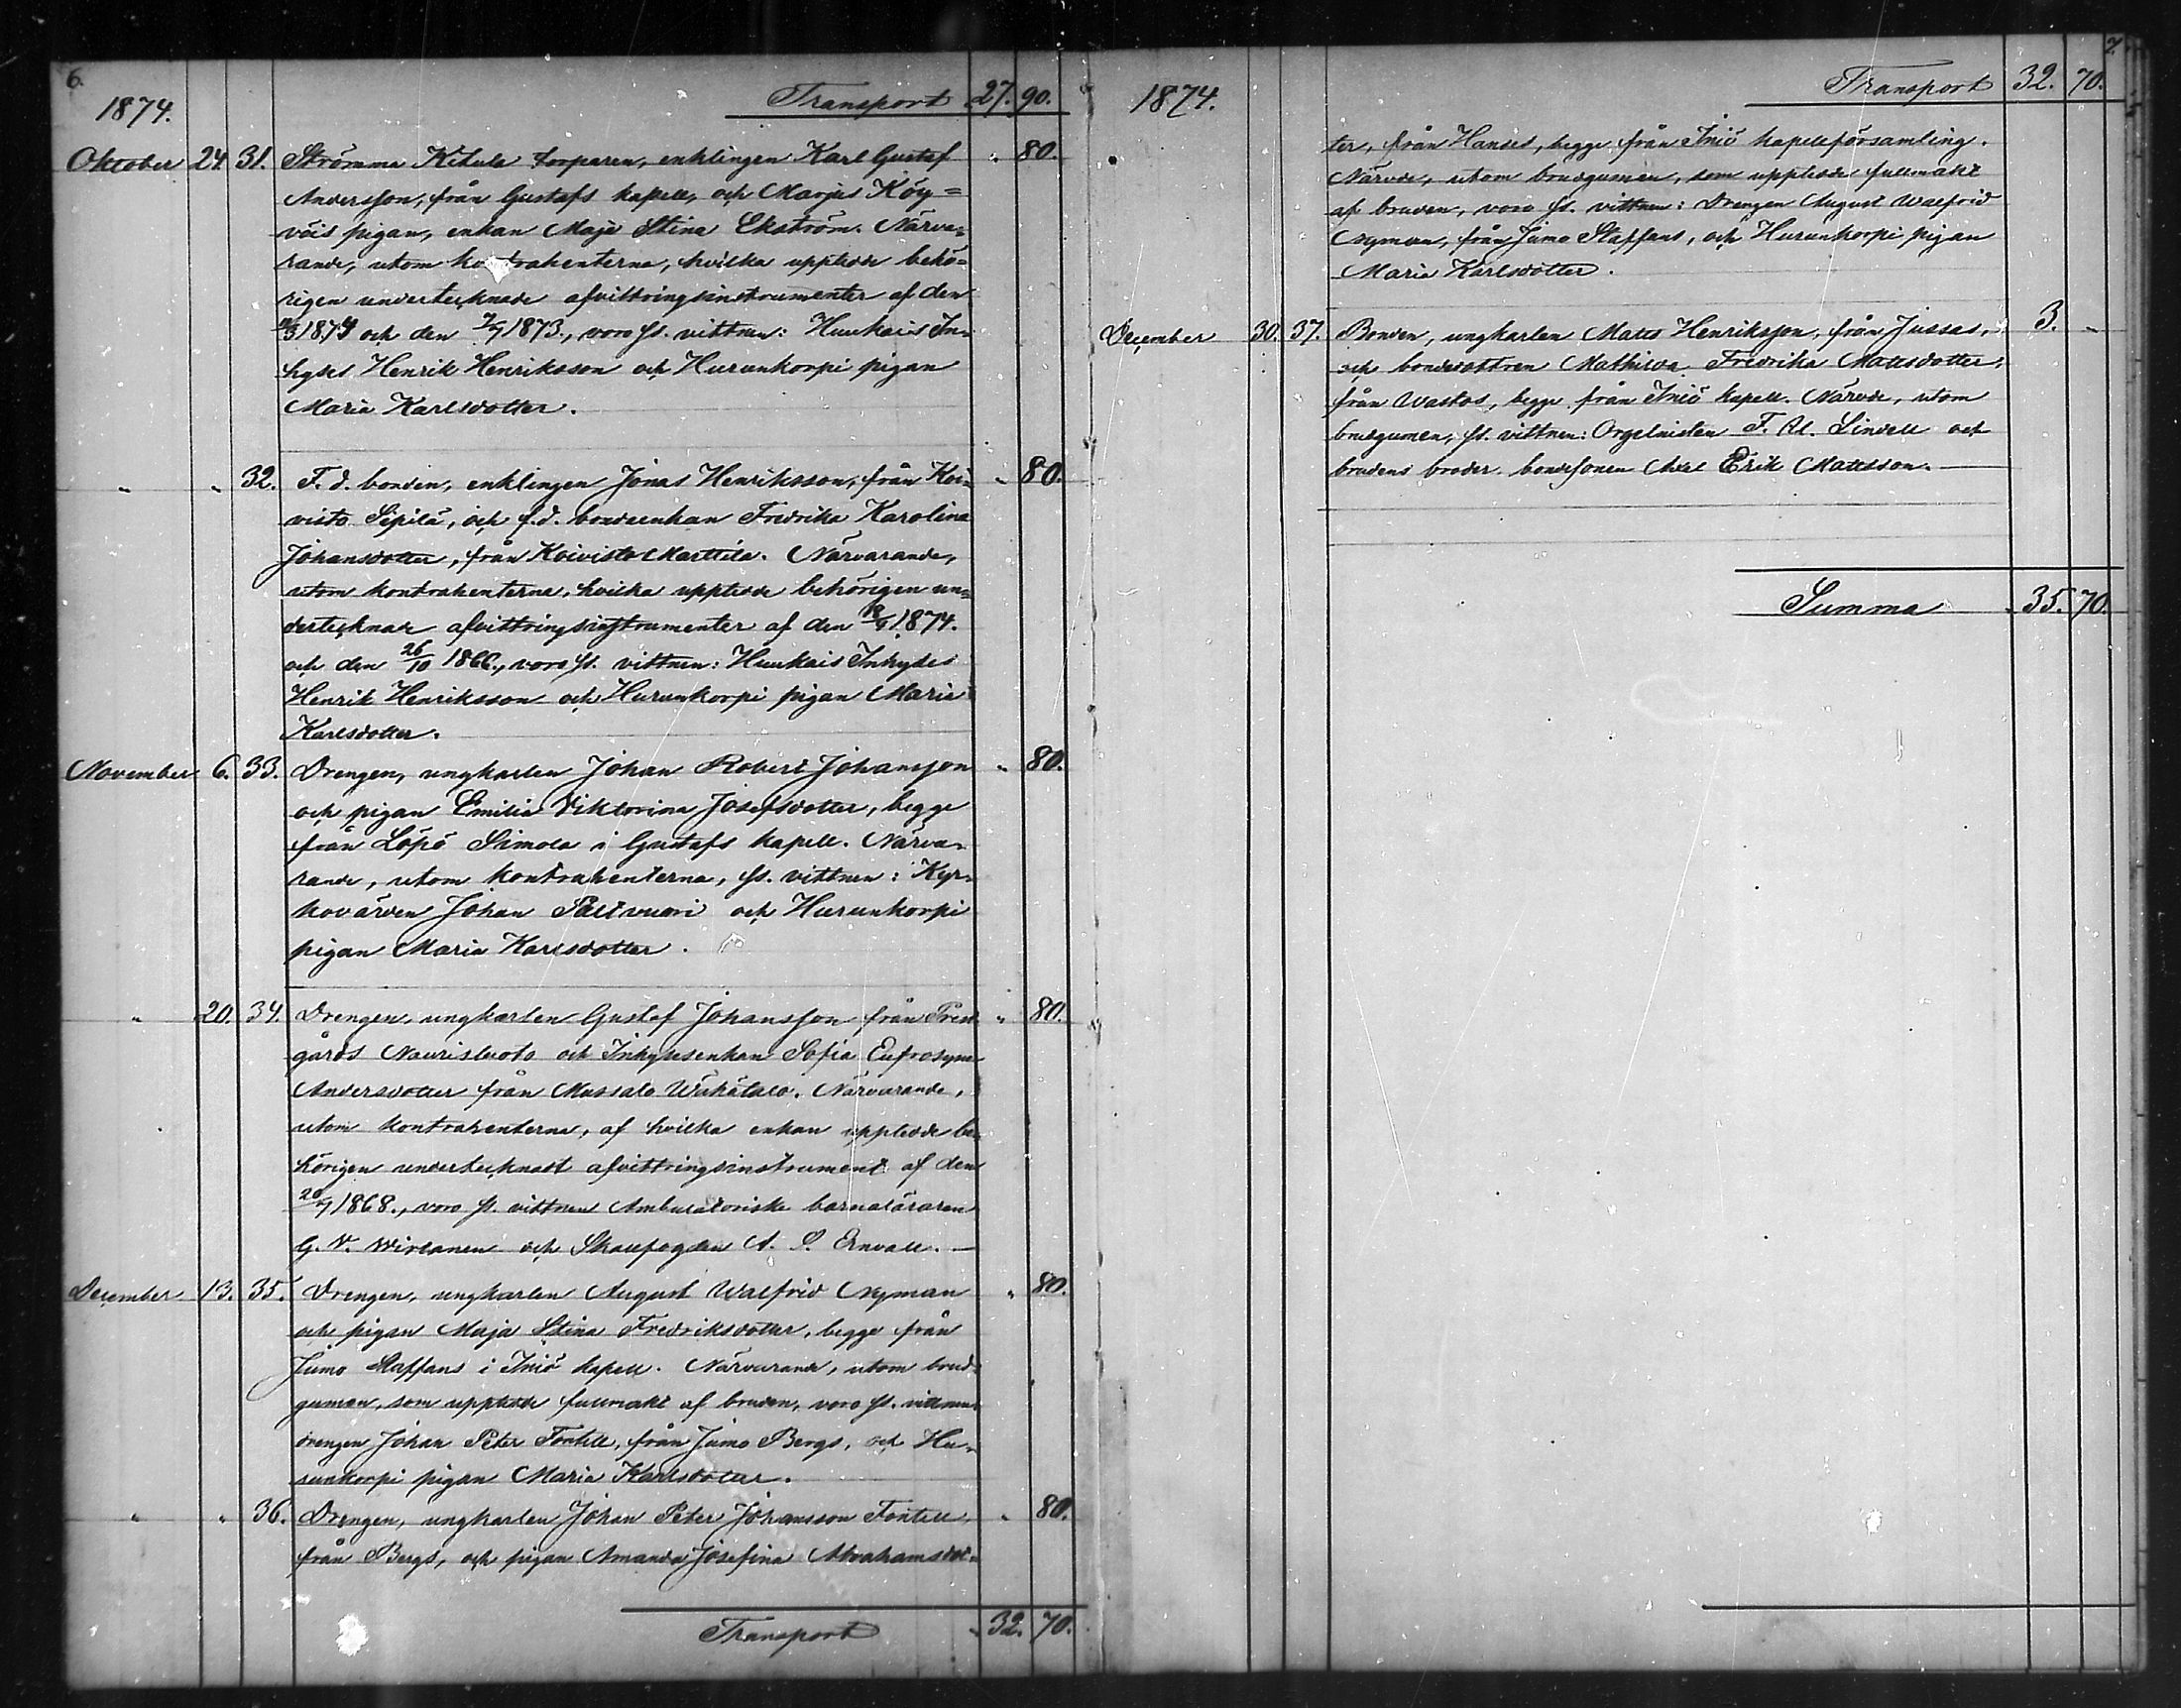 6.
1874.
Transport 27. 90.
Oktober 24. 31. Strömma Kitula torparen, enklingen Karl Gustaf " 80.
Andersson, från Gustafs kapell, och Marjus Köy=
väis pigan, enkan Maja Stina Ekström. Närva-
rande, utom kontrahenterna, hvilka uppteddde behö-
rigen undertecknade afvittringsinstrumenter af den
1874 och den 7/7 1873., voro ss. vittnen: Huukais In-
hyses Henrik Henriksson och Hurunkorpi pigan
Maria Karlsdotter.
" " 32. F. d. bonden, enklingen Jonas Henriksson, från Koi- " 80.
visto Sipilä, och f.d. bondeenkan Fredrika Karolina
Johansdotter, från Koivisto Marttila. Närvarande,
utom kontrahenterna, hvilka uppteddde behörigen un-
dertecknade afvittringsinstrumenter af den 1874.
och den 26/10 1866., voro ss. vittnen: Huukais Inhyses
Henrik Henriksson och Hurunkorpi pigan Maria
Karlsdotter.
November 6. 33. Drengen, ungkarlen Johan Robert Johansson " 80.
och pigan Emilia Viktorina Josefsdotter, begge
från Löpö Simola i Gustafs kapell. Närva-
rande, utom kontrahenterna, ss. vittnen: Kyr-
kovärden Johan Palivuori och Hurunkorpi
pigan Maria Karlsdotter.
" 20. 34. Drengen, ungkarlen Gustaf Johansson från Prest- " 80.
gårds Naurisluoto och Inhysesenkan Sofia Eufrosyne
Andersdotter från Mussalo Wähätalo. Närvarande,
utom kontrahenterna, af hvilka enkan uppteddde be-
hörigen undertecknadt afvittringsinstrument af den
20/7 1868., voro ss. vittnen Ambulatoriske barnaläraren
G. V. Wirtanen och Skallfogden A. S. Ernvall. —
December 13. 35. Drengen, ungkarlen August Walfrid Nyman " 80.
och pigan Maja Stina Fredriksdotter, begge från
Jumo Staffans i Iniö kapell. Närvarande, utom brud-
gumen, som upptedde fullmakt af bruden, voro ss. vittnen
drengen Johan Peter Fontell, från Jumo Bergs, och Hu-
runkorpi pigan Maria Karlsdotter.
" " 36. Drengen, ungkarlen Johan Peter Johansson Fontell, " 80.
från Bergs, och pigan Amanda Josefina Abrahamsdot-
Transport 32. 70.
7.
1874.
Transport 32. 70.
ter, från Hanses, begge från Iniö kapellförsamling.
Närvde, utom brudgumen, som upptedde fullmakt
af bruden, voro ss. vittnen: Drengen August Walfrid
Nyman, från Jumo Staffans, och Hurunkorpi pigan
Maria Karlsdotter.
December 30. 37. Bonden, ungkarlen Mats Henriksson, från Jussas, 3. "
och bondedottren Mathilda Fredrika Matsdotter,
från Wastos, begge från Iniö kapell. Närvde, utom
brudgumen, ss. vittnen: Orgelnisten F. Al. Lindell och
brudens broder bondesonen Axel Erik Matsson. —
Summa 35. 70.